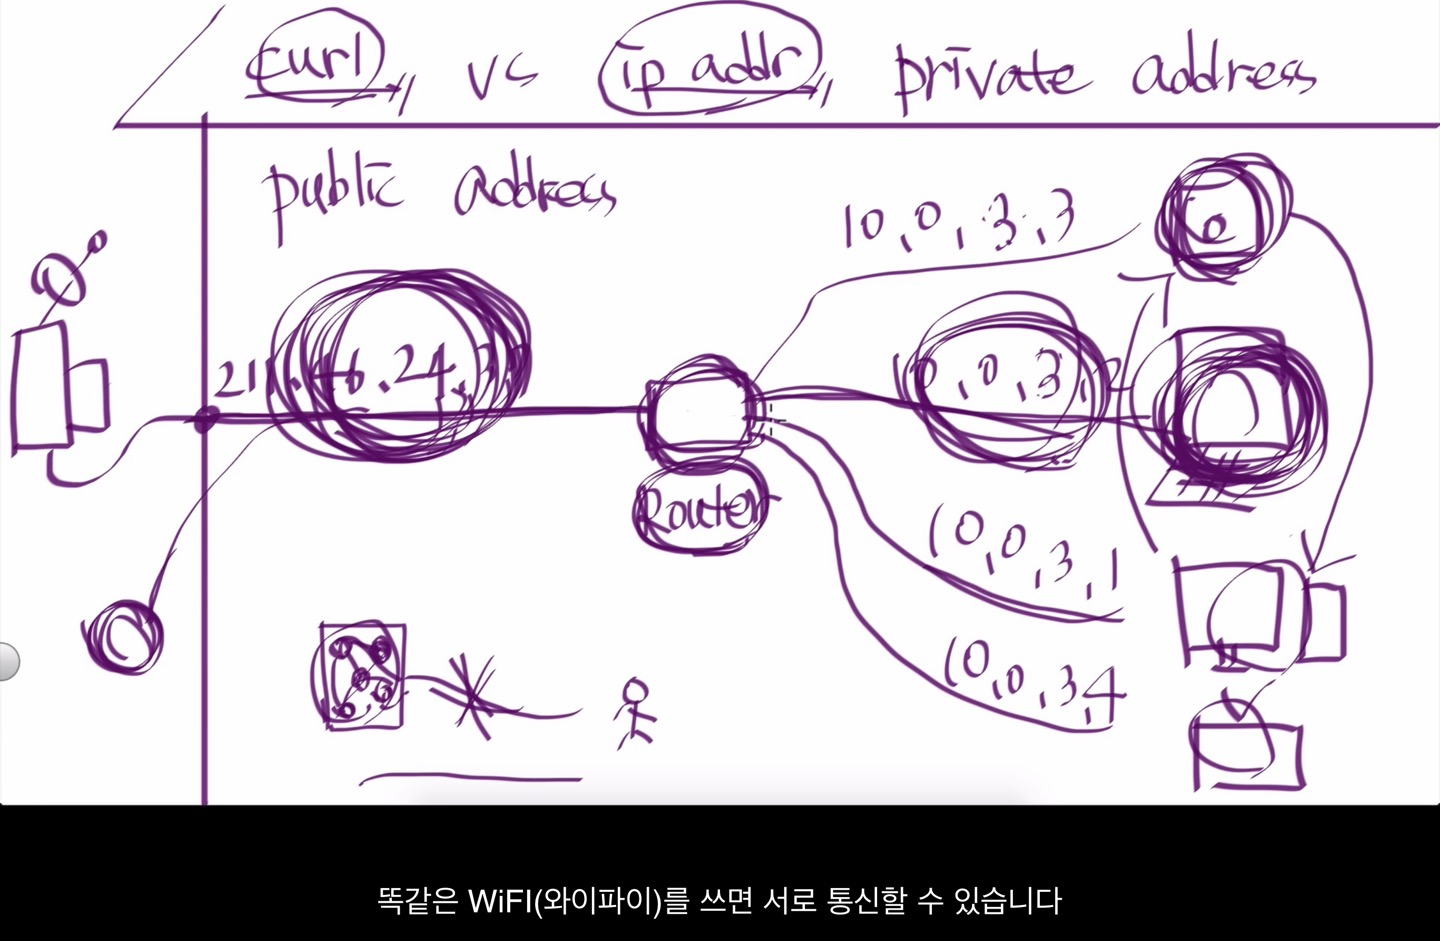 curl vs ip addr private address
public address
10.0.3.3
10.0.3.2
Router
10.0.3.1
10.0.3.4
똑같은 WiFI(와이파이)를 쓰면 서로 통신할 수 있습니다